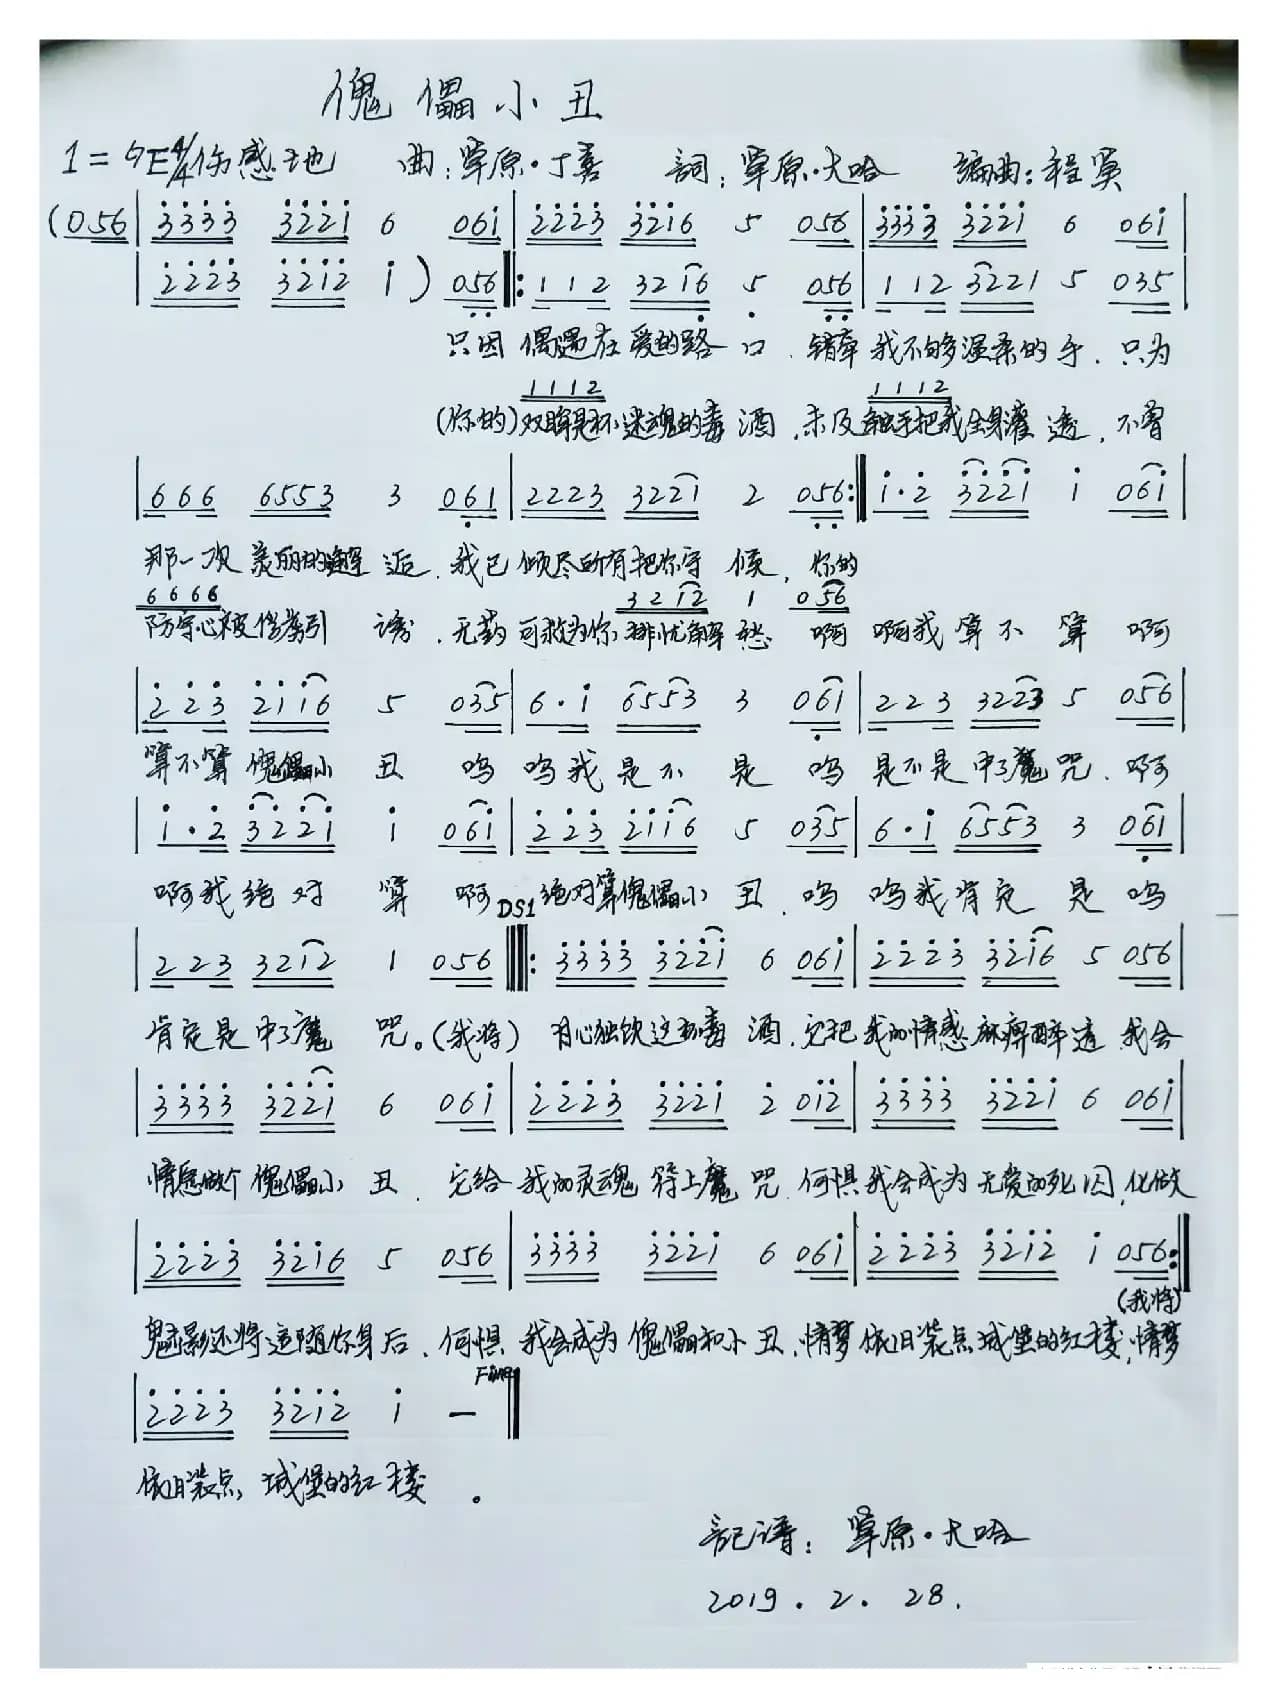 傀儡小丑
1=♭E 4/4 伤感地 曲:草原·丁喜 詞:草原·大哈 编曲:程寞
(056|3333 3221 6 061|2223 3216 5 056|3333 3221 6 061|
|2223 3212 1)056‖:112 3216 5 056|112 3221 5 035|
只因 偶遇在爱的路口,错牵我不够温柔的手,只为
1112 1112
(你的)双眸是杯迷魂的毒酒,未及触手把我全身灌透,不曾
|666 6553 3 061|2223 3221 2 056:‖1·2 3221 1 061|
那一次美丽的邂逅,我已倾尽所有把你守候,你的
6666 3212 1 056
防守心被你劳引诱,无药可救为你排忧解愁 啊 啊我算不算 啊
|223 2116 5 035|6·1 6553 3 061|223 3223 5 056|
算不算傀儡小丑 呜 呜我是不是 呜 是不是中了魔咒,啊
|1·2 3221 1 061|223 2116 5 035|6·1 6553 3 061|
啊我绝对算 啊 绝对算傀儡小丑,呜 呜我肯定是 呜
DS1
|223 3212 1 056‖:3333 3221 6 061|2223 3216 5 056|
肯定是中了魔咒。(我将)甘心独饮这杯毒酒,它把我的情感麻痹醉透 我会
|3333 3221 6 061|2223 3221 2 012|3333 3221 6 061|
情愿做个傀儡小丑,它给我的灵魂符上魔咒,何惧我会成为无爱的死囚,化做
|2223 3216 5 056|3333 3221 6 061|2223 3212 1 056:‖
(我将)
魅影还将追随你身后,何惧我会成为傀儡和小丑,情梦依旧装点城堡的红楼,情梦
Fine
|2223 3212 1 —‖
依旧装点城堡的红楼。
記谱:草原·大哈
2019.2.28.